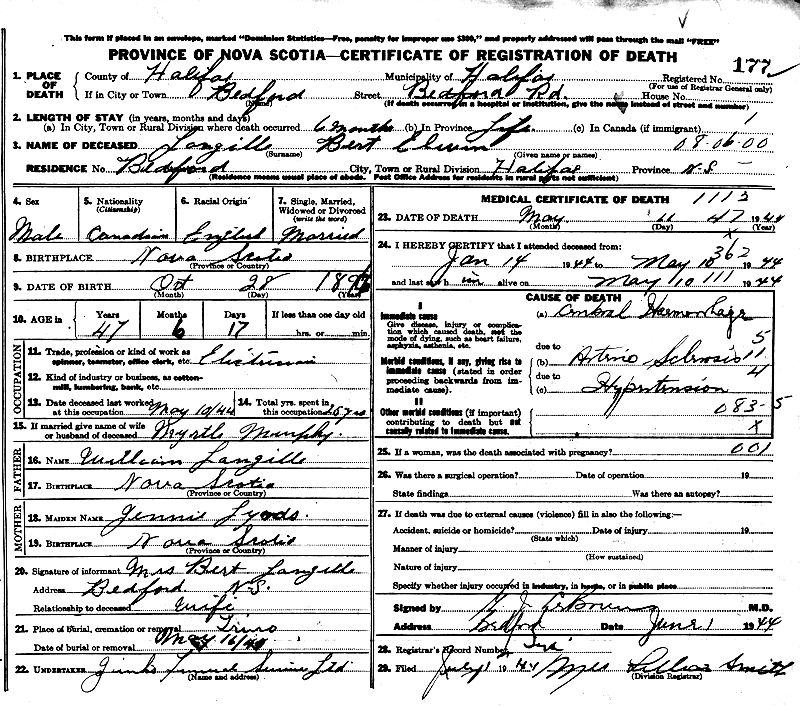 This form if placed in an envelope, marked "Dominion Statistics—Free, penalty for improper use $300," and properly addressed will pass through the mail "FREE"
PROVINCE OF NOVA SCOTIA—CERTIFICATE OF REGISTRATION OF DEATH
177
1. PLACE OF DEATH County of Halifax Municipality of Halifax Registered No.
(For use of Registrar General only)
If in City or Town Bedford Street Bedford Rd. House No.
(Name) (If death occurred in a hospital or institution, give the name instead of street and number)
2. LENGTH OF STAY (in years, months and days)
(a) In City, Town or Rural Division where death occurred 6 months (b) In Province Life (c) In Canada (if immigrant) 1
3. NAME OF DECEASED Langille Bert Elwin 08.06.00
(Surname) (Given name or names)
RESIDENCE No. Bedford City, Town or Rural Division Halifax Province N.S.
(Residence means usual place of abode. Post Office Address for residents in rural parts not sufficient)
4. Sex 5. Nationality (Citizenship) 6. Racial Origin 7. Single, Married, Widowed or Divorced (write the word)
Male Canadian English Married
8. BIRTHPLACE Nova Scotia
(Province or Country)
9. DATE OF BIRTH Oct 28 189
(Month) (Day) (Year)
10. AGE in Years Months Days If less than one day old
47 6 17 hrs. or min.
OCCUPATION
11. Trade, profession or kind of work as spinner, teamster, office clerk, etc.
12. Kind of industry or business, as cotton-mill, lumbering, bank, etc.
13. Date deceased last worked at this occupation May 10/44 14. Total yrs. spent in this occupation 25 yrs
15. If married give name of wife or husband of deceased Myrtle Murphy.
FATHER
16. NAME William Langille
17. BIRTHPLACE Nova Scotia
(Province or Country)
MOTHER
18. MAIDEN NAME Jennie
19. BIRTHPLACE Nova Scotia
(Province or Country)
20. Signature of informant Mrs Bert Langille
Address Bedford N.S.
Relationship to deceased wife
21. Place of burial, cremation or removal Truro
Date of burial or removal May 16/44
22. UNDERTAKER Funeral Service Ltd
(Name and address)
MEDICAL CERTIFICATE OF DEATH 1113
23. DATE OF DEATH May 47 1944
(Month) (Day) (Year)
x
24. I HEREBY CERTIFY that I attended deceased from: 362
Jan 14 1944 to May 10 1944
and last saw h im alive on May 10 111 1944
CAUSE OF DEATH
I
Immediate cause
Give disease, injury or complication which caused death, not the mode of dying, such as heart failure, asphyxia, asthenia, etc.
(a) Cerebral Haemorrhage
due to 5
Morbid conditions, if any, giving rise to immediate cause (stated in order proceeding backwards from immediate cause).
(b) Arterio Sclerosis 11
due to 4
(c) Hypertension
II
Other morbid conditions (if important) contributing to death but not causally related to immediate cause.
083-5
x
25. If a woman, was the death associated with pregnancy? 001
26. Was there a surgical operation? Date of operation 19
State findings Was there an autopsy?
27. If death was due to external causes (violence) fill in also the following:—
Accident, suicide or homicide? Date of injury 19
(State which)
Manner of injury
(How sustained)
Nature of injury
Specify whether injury occurred in industry, in home, or in public place
Signed by M.D.
Address Bedford Date June 1 1944
28. Registrar's Record Number
29. Filed July 1 1944 Mrs Smith
(Division Registrar)